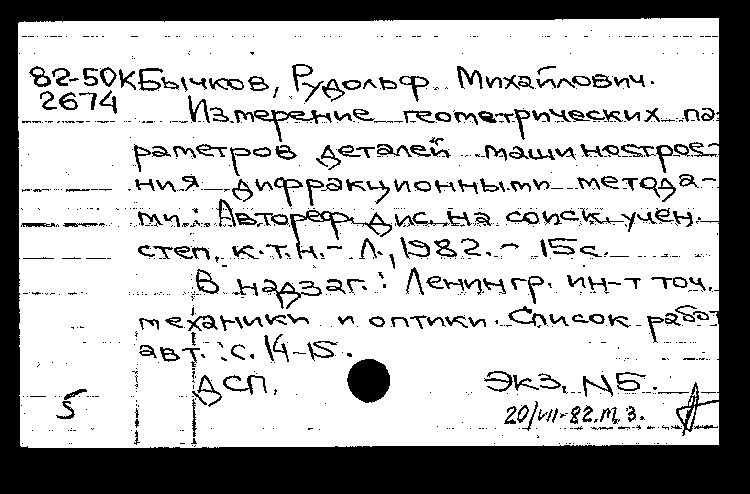 82-50К Бычков, Рудольф Михайлович.
2674 Измерение геометрических па-
раметров деталей машинострое-
ния дифракционными метода-
ми: Автореф. дис. на соиск. учен.
степ. к.т.н. - Л., 1982. - 15с.
В надзаг.: Ленингр. ин-т точ.
механики и оптики. Список работ
авт.: с. 14-15.
ДСП. Экз. N5.
5 20/VII-82. т. 3.